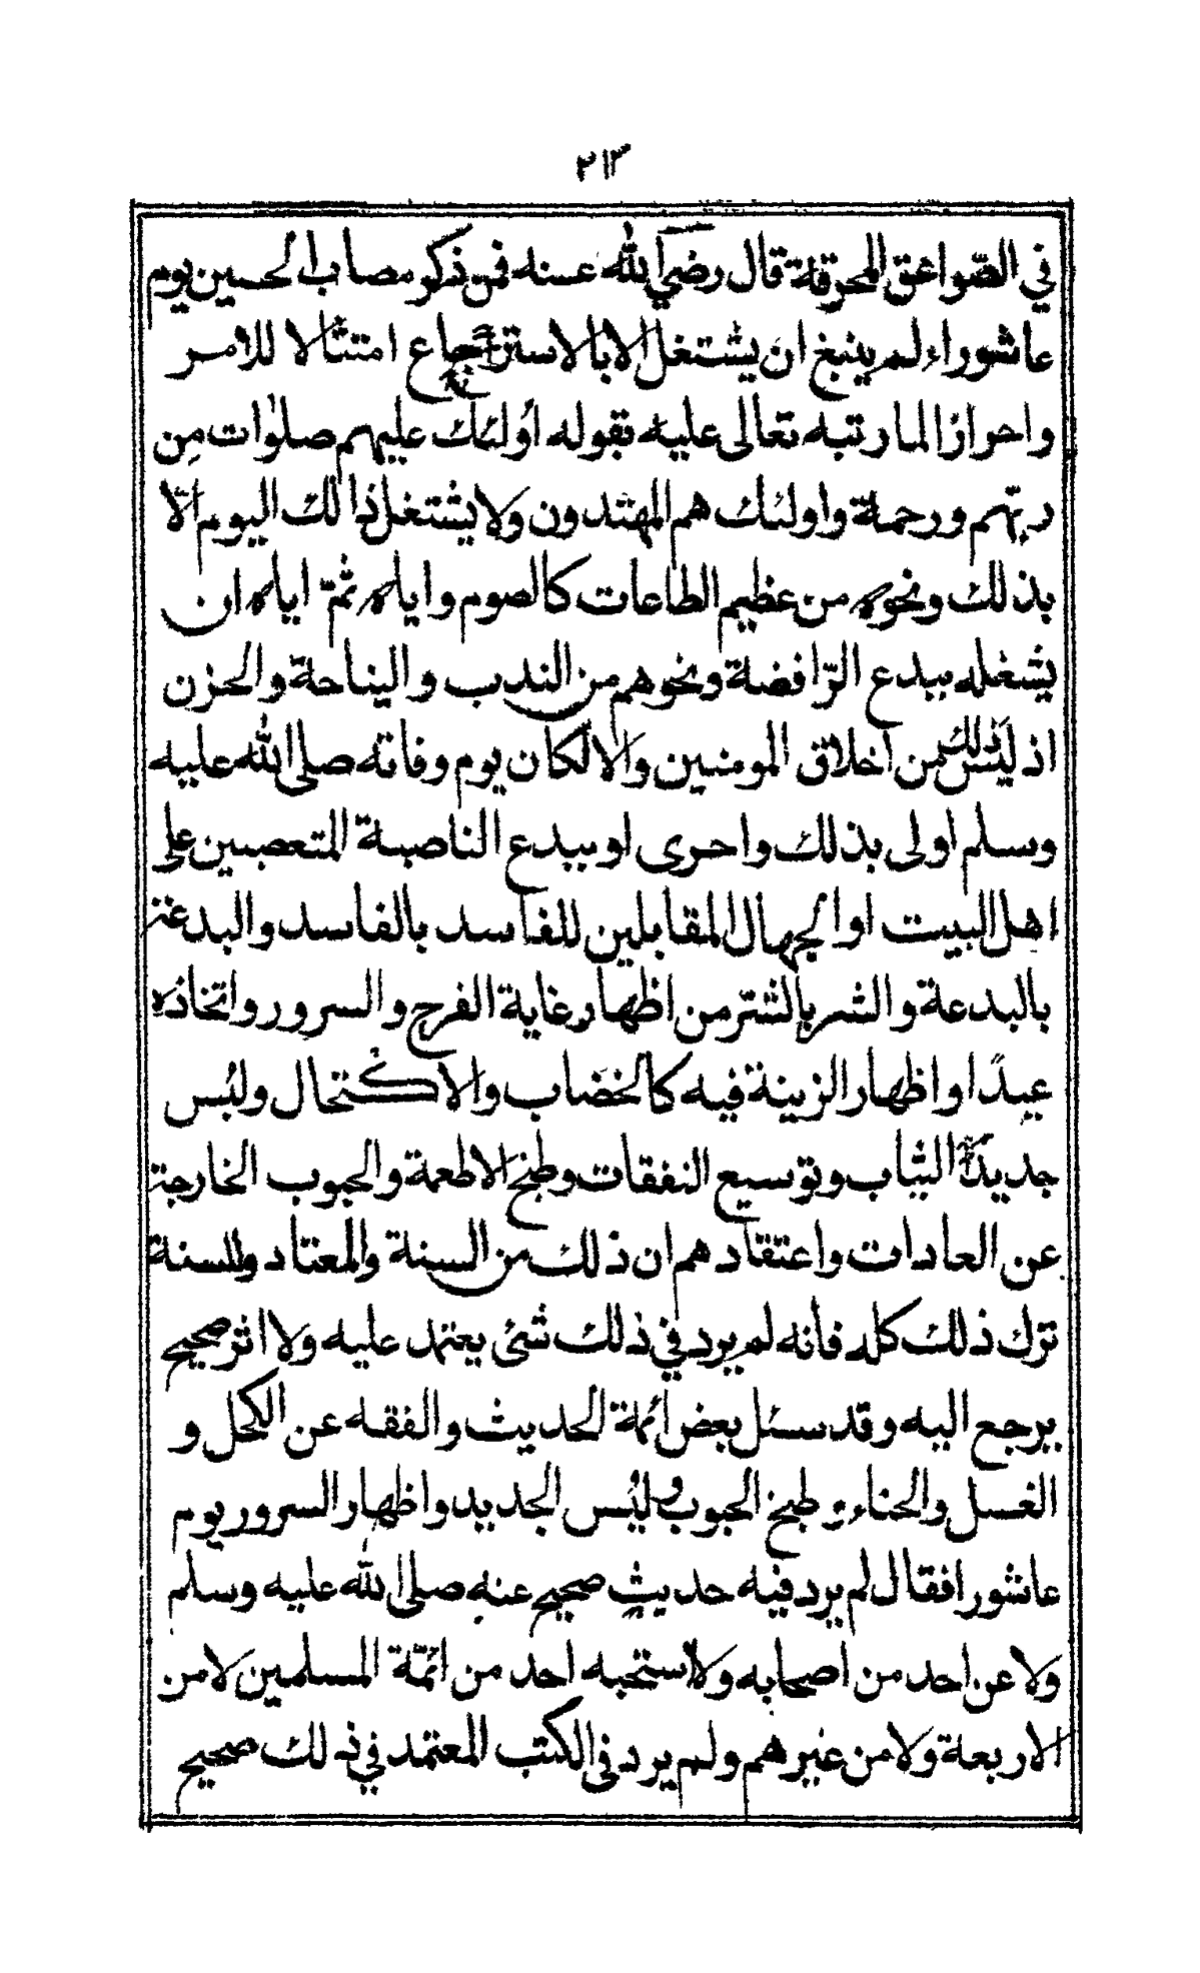 ٢١٣
في الصّواعق المحرقة قال رضي الله عنه فمن ذكر مصاب الحسين يوم
عاشوراء لم ينبغ ان يشتغل الا بالاسترجاع امتثالا للامر
واحرازا لما رتبه تعالى عليه بقوله اُولئك عليهم صلوات مِن
ربّهم ورحمة واولئك هم المهتدون ولا يشتغل ذالك اليوم الّا
بذلك ونحوه من عظيم الطاعات كالصوم واياه ثمّ اياه ان
يشغله ببدع الرّافضة ونحوهم من الندب والنياحة والحزن
اذ ليس ذلك من اخلاق المومنين والا لكان يوم وفاته صلى الله عليه
وسلم اولى بذلك واحرى او ببدع الناصبة المتعصبين على
اهل البيت او الجهال المقابلين للفاسد بالفاسد والبدعة
بالبدعة والشر بالشّر من اظهار غاية الفرح والسرور واتخاذه
عيدًا واظهار الزينة فيه كالخضاب والاكتحال ولبُس
جديد الثياب وتوسيع النفقات وطبخ الاطعمة والحبوب الخارجة
عن العادات واعتقادهم ان ذلك من السنة والمعتاد والسنة
ترك ذلك كله فأنه لم يرد في ذلك شئ يعتمد عليه ولا اثر صحيح
يرجع اليه وقد سئل بعض ائمة الحديث والفقه عن الكحل و
الغسل والحناء و طبخ الحبوب ولبُس الجديد واظهار السرور يوم
عاشورا فقال لم يرد فيه حديث صحيح عنه صلى الله عليه وسلم
ولا عن احد من اصحابه ولا استحبه احد من ائمّة المسلمين لا من
الاربعة ولا من غيرهم ولم يرد فى الكتب المعتمد في ذلك صحيح